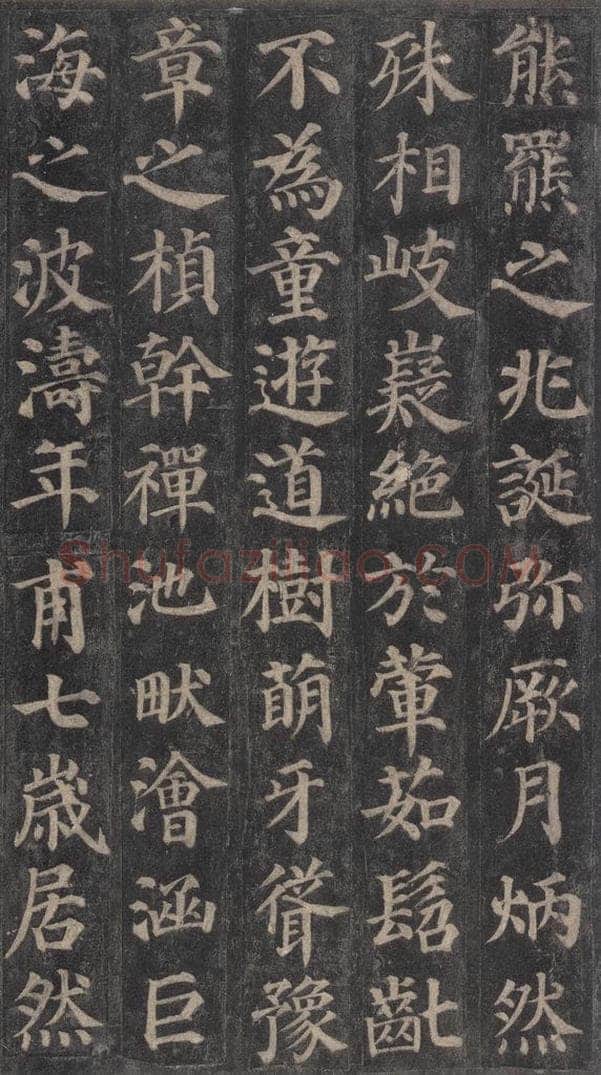 熊羆之兆誕弥厥月炳然
殊相岐嶷絶於葷茹髫齔
不為童遊道樹萌牙聳豫
章之楨幹禪池畎澮涵巨
海之波濤年甫七歲居然
Shufaziliao.COM